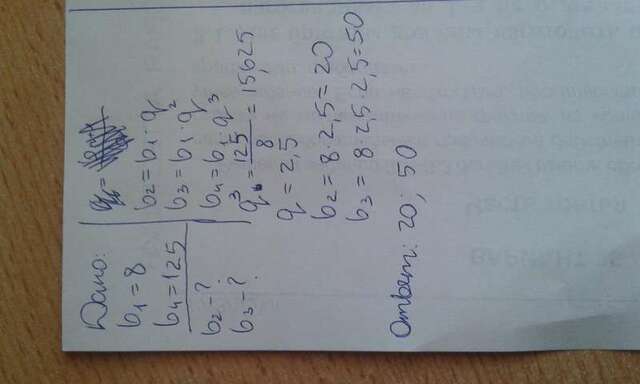 Дано:
b₁ = 8
b₄ = 125
b₂ - ?
b₃ - ?
b₂ = b₁ · q
b₃ = b₁ · q²
b₄ = b₁ · q³
q³ = 125/8 = 15,625
q = 2,5
b₂ = 8 · 2,5 = 20
b₃ = 8 · 2,5 · 2,5 = 50
Ответ: 20; 50